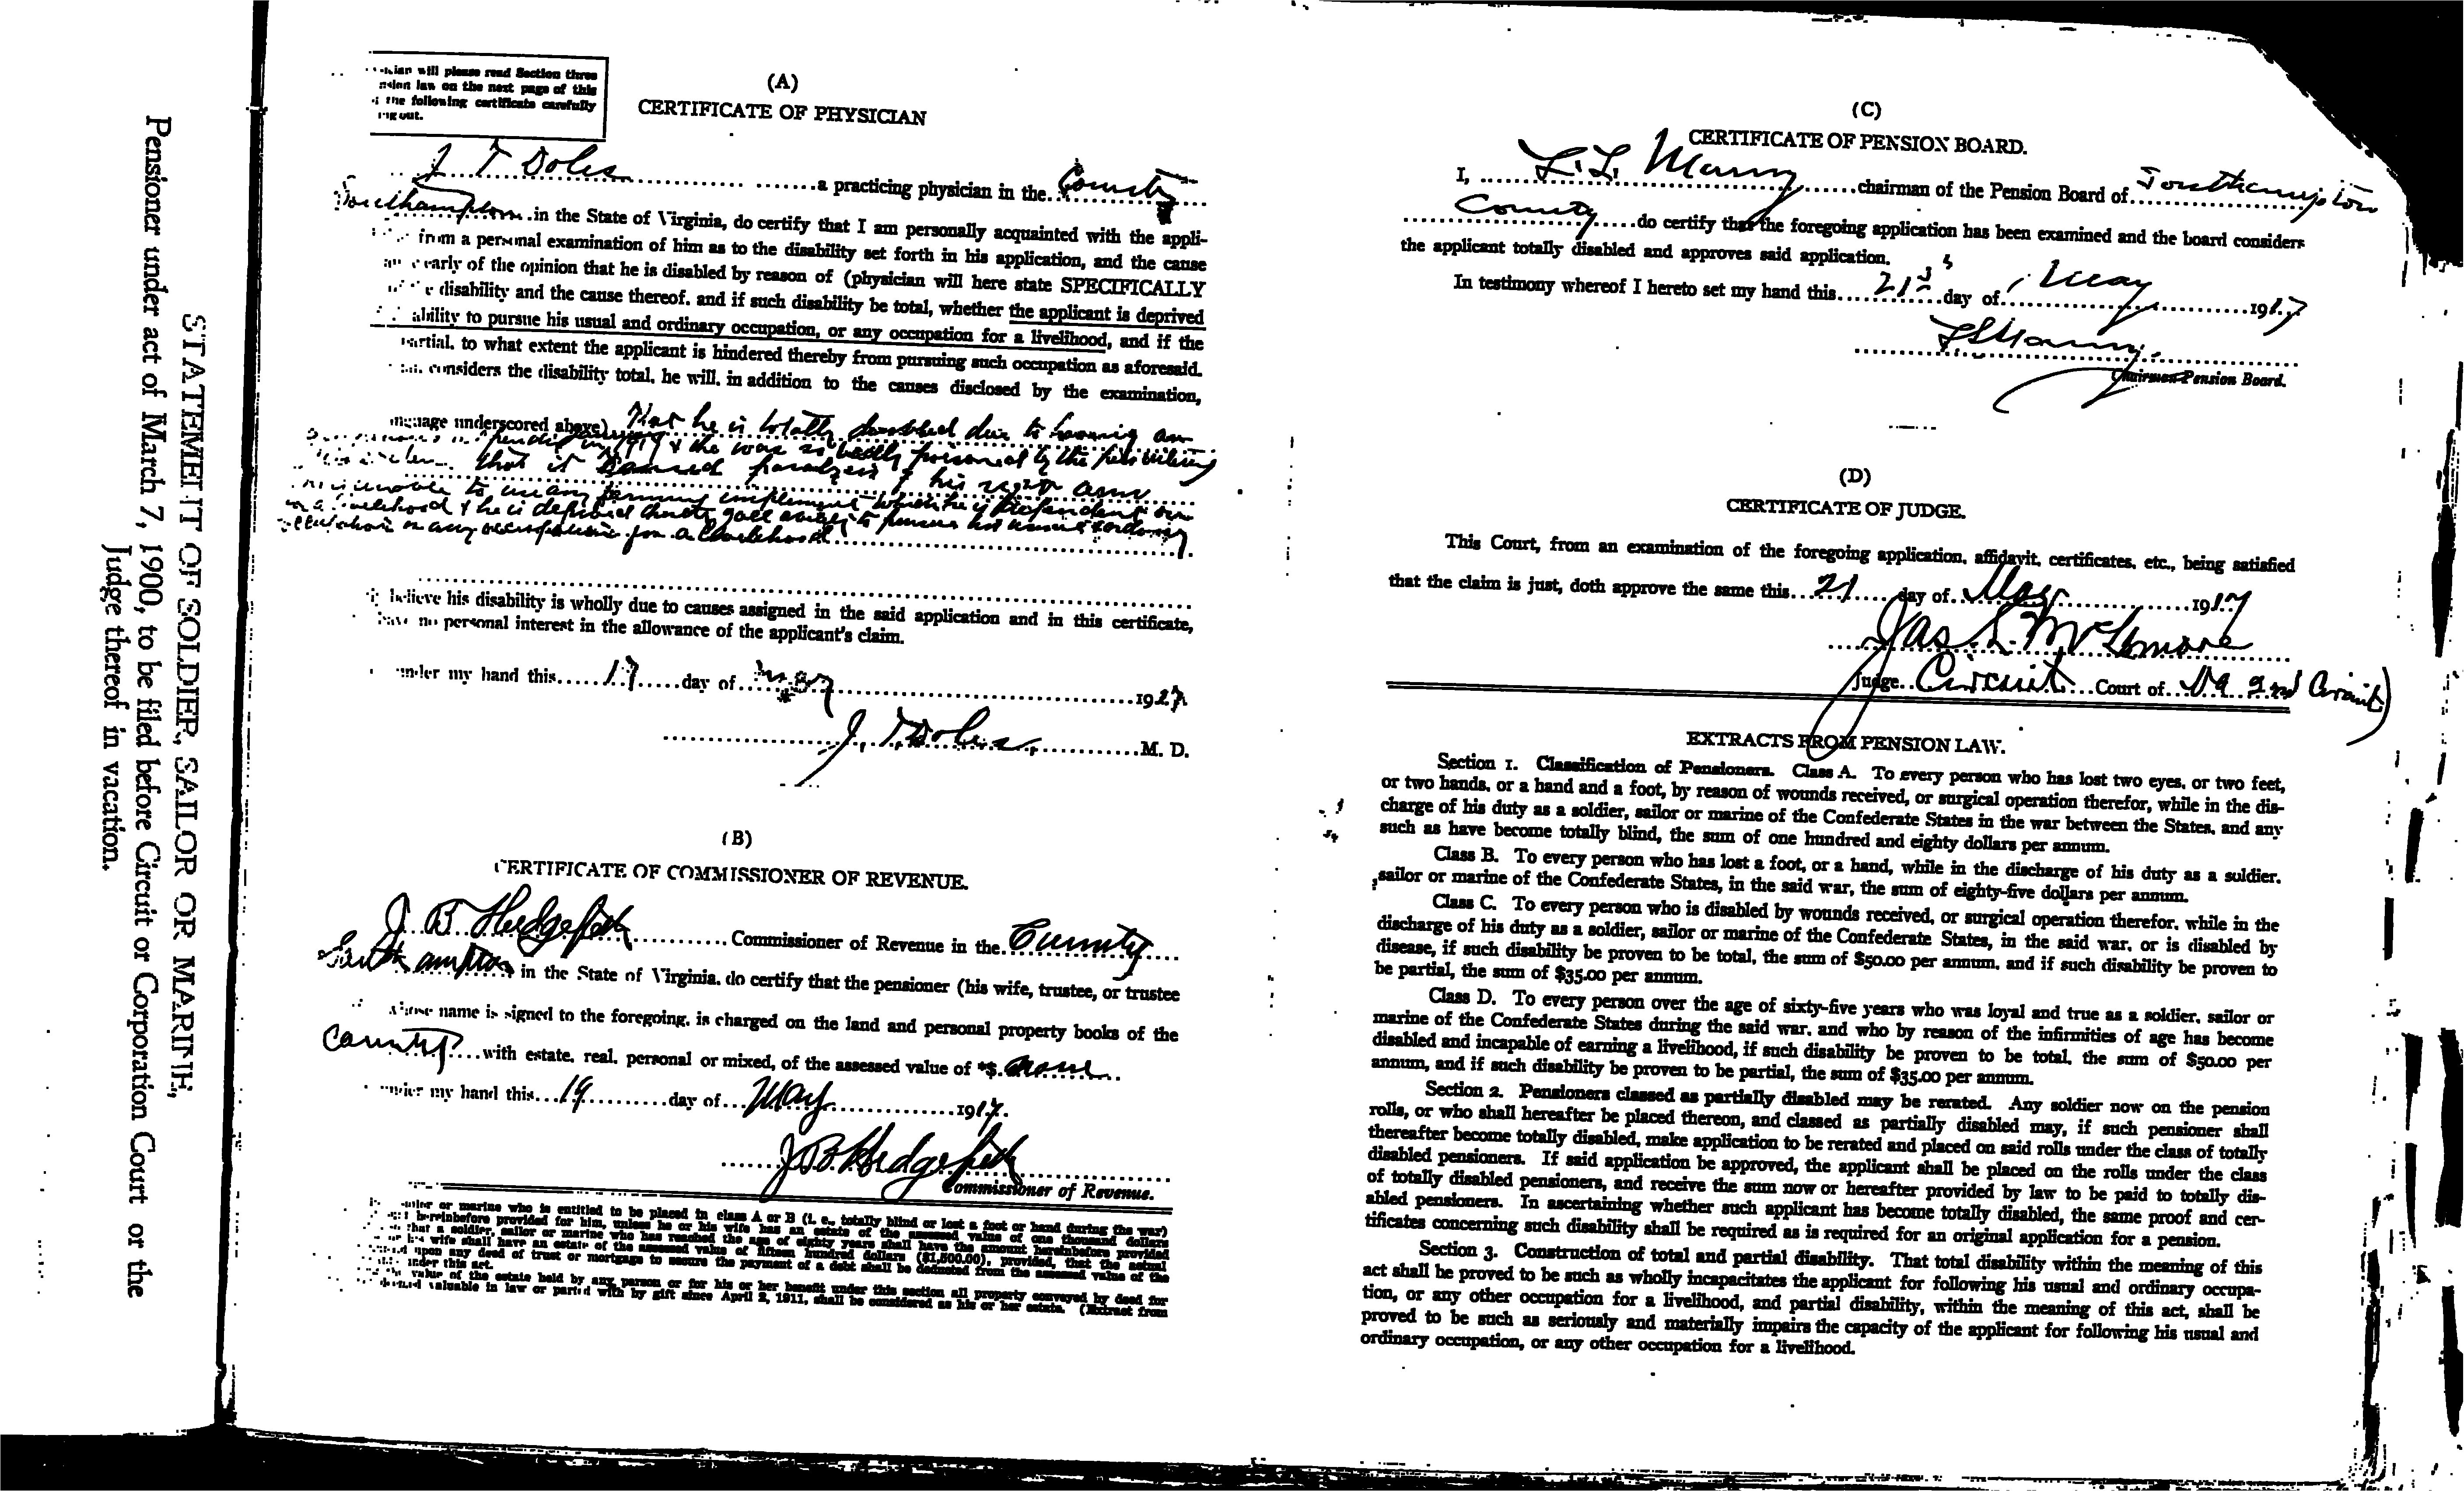 STATEMENT OF SOLDIER, SAILOR OR MARINE,
Pensioner under act of March 7, 1900, to be filed before Circuit or Corporation Court or the
Judge thereof in vacation.
will please read Section three
law on the next page of this
the following certificate carefully
out.
(A)
CERTIFICATE OF PHYSICIAN
J T Doles a practicing physician in the County
Southampton in the State of Virginia, do certify that I am personally acquainted with the appli-
from a personal examination of him as to the disability set forth in his application, and the cause
of the opinion that he is disabled by reason of (physician will here state SPECIFICALLY
disability and the cause thereof, and if such disability be total, whether the applicant is deprived
ability to pursue his usual and ordinary occupation, or any occupation for a livelihood, and if the
partial, to what extent the applicant is hindered thereby from pursuing such occupation as aforesaid.
considers the disability total, he will, in addition to the causes disclosed by the examination,
underscored above) That he is totally disabled due to having an
& he was so badly poisoned by the
that it caused paralysis of his right arm
unable to use any farming implement which he is dependent on
livelihood & he is deprived to pursue his usual & ordinary
or any occupation for a livelihood
believe his disability is wholly due to causes assigned in the said application and in this certificate,
have no personal interest in the allowance of the applicant's claim.
under my hand this 17 day of May 1927
J. T. Doles, M. D.
(B)
CERTIFICATE OF COMMISSIONER OF REVENUE.
J. B. Hedgepeth Commissioner of Revenue in the County
Southampton in the State of Virginia, do certify that the pensioner (his wife, trustee, or trustee
whose name is signed to the foregoing, is charged on the land and personal property books of the
County with estate, real, personal or mixed, of the assessed value of *$ none
under my hand this 19 day of May 1917.
J. B. Hedgepeth
Commissioner of Revenue.
or marine who is entitled to be placed in class A or B (i. e., totally blind or lost a foot or hand during the war)
hereinbefore provided for him, unless he or his wife has an estate of the assessed value of one thousand dollars
that a soldier, sailor or marine who has reached the age of eighty years shall have the amount hereinbefore provided
his wife shall have an estate of the assessed value of fifteen hundred dollars ($1,500.00), provided, that the actual
upon any deed of trust or mortgage to secure the payment of a debt shall be deducted from the assessed value of the
under this act.
value of the estate held by any person or for his or her benefit under this section all property conveyed by deed for
valuable in law or parted with by gift since April 2, 1911, shall be considered as his or her estate. (Extract from
(C)
CERTIFICATE OF PENSION BOARD.
I, L. L. Manry chairman of the Pension Board of Southampton
County do certify that the foregoing application has been examined and the board considers
the applicant totally disabled and approves said application.
In testimony whereof I hereto set my hand this 21st day of May 1917
L L Manry.
Chairman Pension Board.
(D)
CERTIFICATE OF JUDGE.
This Court, from an examination of the foregoing application, affidavit, certificates, etc., being satisfied
that the claim is just, doth approve the same this 21 day of May 1917
Jas L. McLemore
Judge Circuit Court of Va 2nd Circuit)
EXTRACTS FROM PENSION LAW.
Section 1. Classification of Pensioners. Class A. To every person who has lost two eyes, or two feet,
or two hands, or a hand and a foot, by reason of wounds received, or surgical operation therefor, while in the dis-
charge of his duty as a soldier, sailor or marine of the Confederate States in the war between the States, and any
such as have become totally blind, the sum of one hundred and eighty dollars per annum.
Class B. To every person who has lost a foot, or a hand, while in the discharge of his duty as a soldier,
sailor or marine of the Confederate States, in the said war, the sum of eighty-five dollars per annum.
Class C. To every person who is disabled by wounds received, or surgical operation therefor, while in the
discharge of his duty as a soldier, sailor or marine of the Confederate States, in the said war, or is disabled by
disease, if such disability be proven to be total, the sum of $50.00 per annum, and if such disability be proven to
be partial, the sum of $35.00 per annum.
Class D. To every person over the age of sixty-five years who was loyal and true as a soldier, sailor or
marine of the Confederate States during the said war, and who by reason of the infirmities of age has become
disabled and incapable of earning a livelihood, if such disability be proven to be total, the sum of $50.00 per
annum, and if such disability be proven to be partial, the sum of $35.00 per annum.
Section 2. Pensioners classed as partially disabled may be rerated. Any soldier now on the pension
rolls, or who shall hereafter be placed thereon, and classed as partially disabled may, if such pensioner shall
thereafter become totally disabled, make application to be rerated and placed on said rolls under the class of totally
disabled pensioners. If said application be approved, the applicant shall be placed on the rolls under the class
of totally disabled pensioners, and receive the sum now or hereafter provided by law to be paid to totally dis-
abled pensioners. In ascertaining whether such applicant has become totally disabled, the same proof and cer-
tificates concerning such disability shall be required as is required for an original application for a pension.
Section 3. Construction of total and partial disability. That total disability within the meaning of this
act shall be proved to be such as wholly incapacitates the applicant for following his usual and ordinary occupa-
tion, or any other occupation for a livelihood, and partial disability, within the meaning of this act, shall be
proved to be such as seriously and materially impairs the capacity of the applicant for following his usual and
ordinary occupation, or any other occupation for a livelihood.